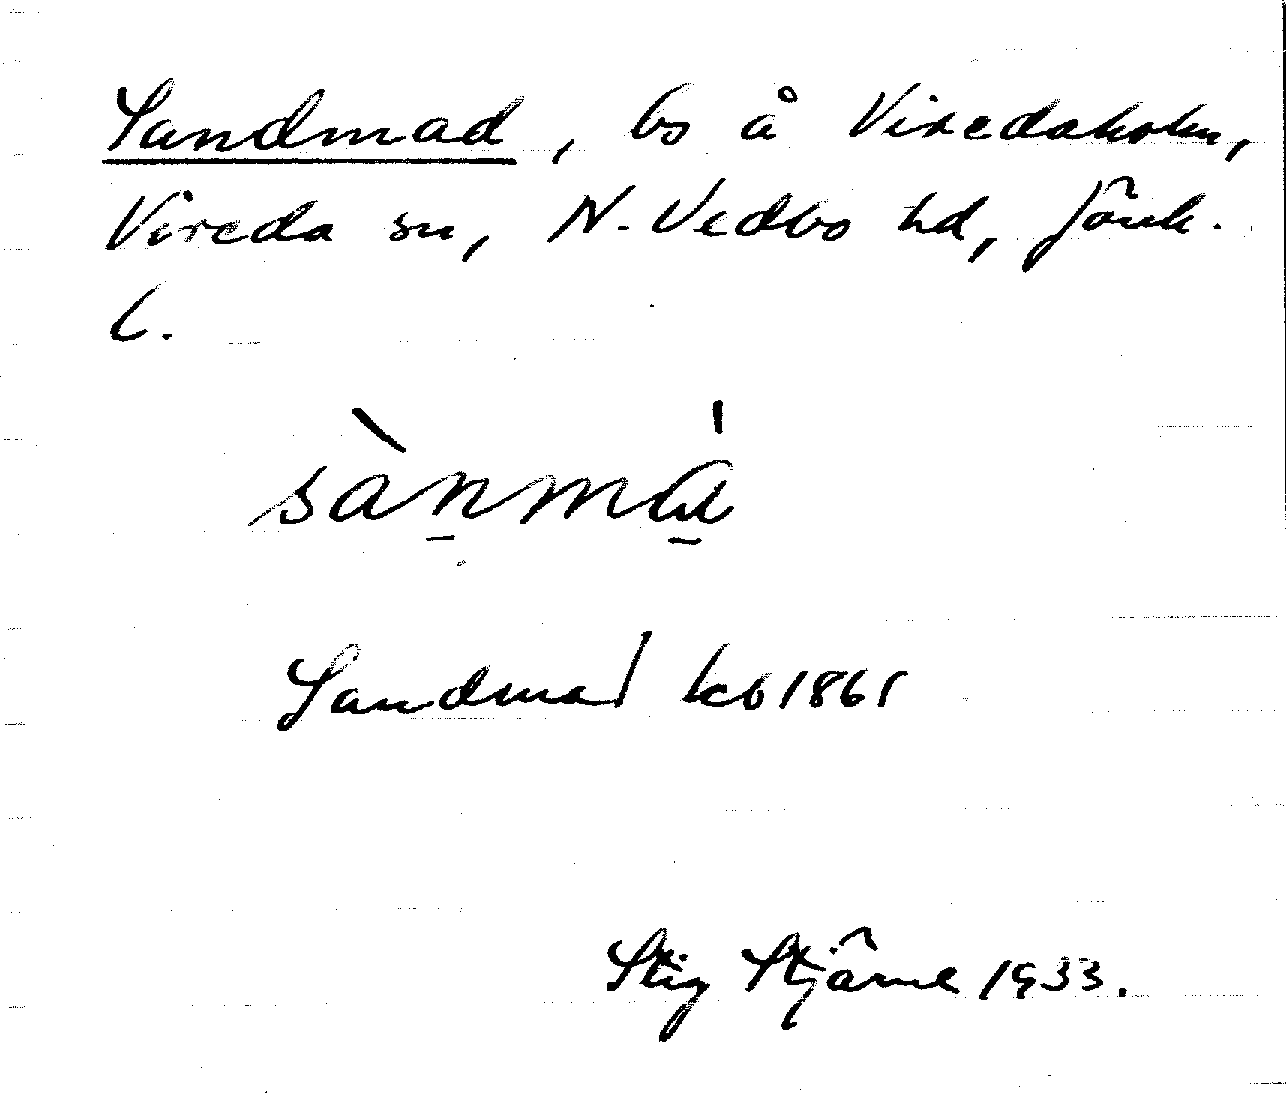 Sandmad, bs å Viredaholm,
Vireda sn, N. Vedbo hd, Jönk.
l.
sànmà
Sandmad kb 1861
Stig Stjärne 1933.